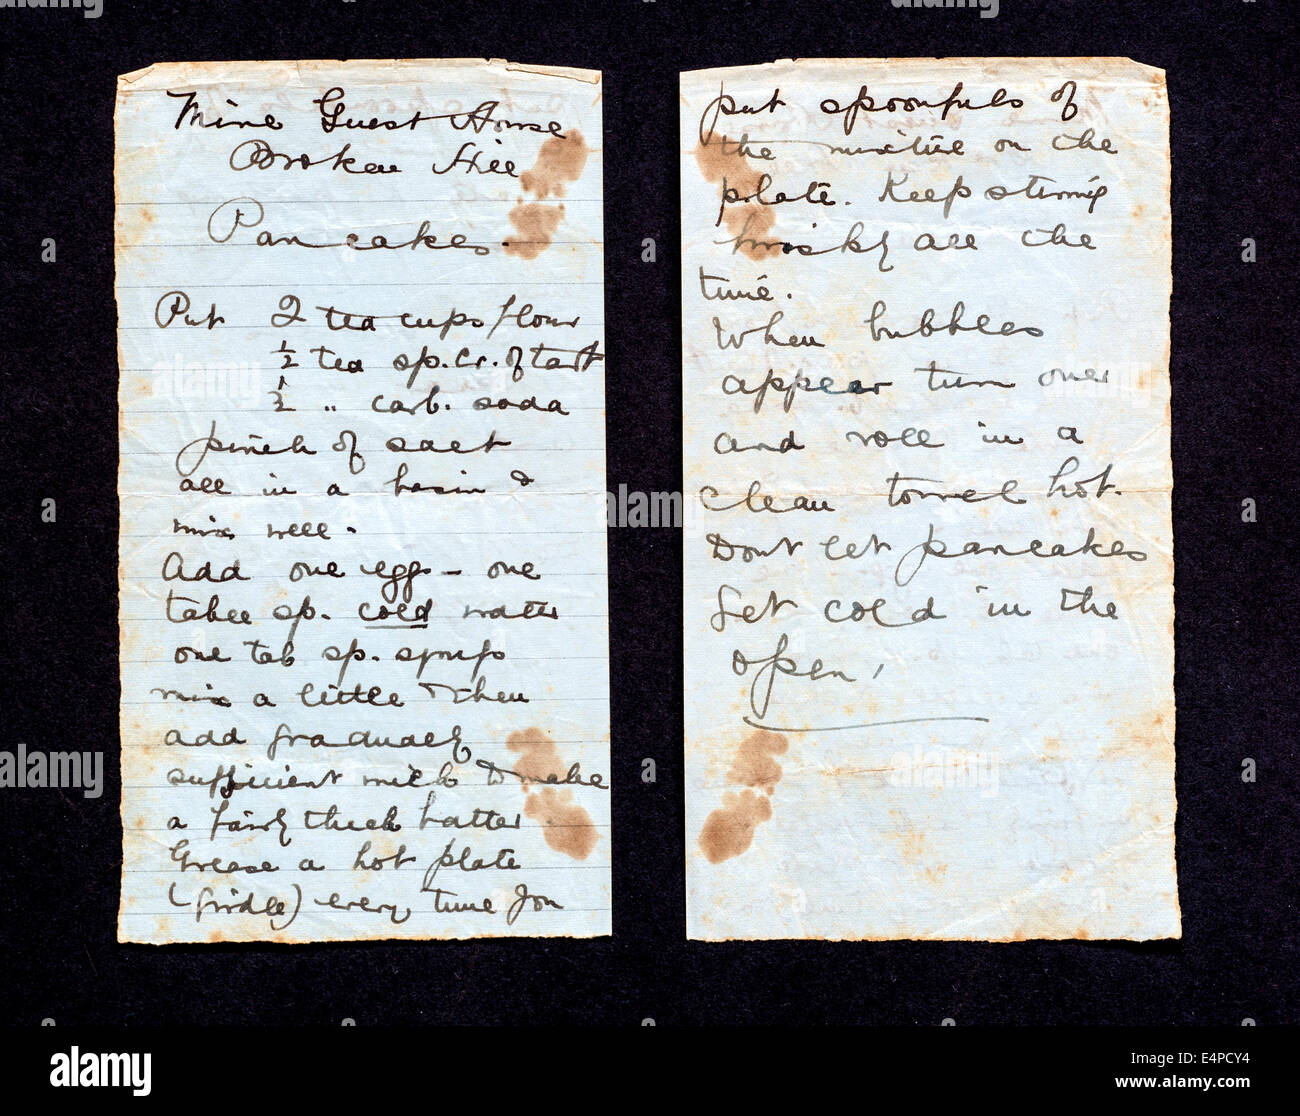 Mine Guest House
Broken Hill
Pancakes.
Put 2 tea cups flour
½ tea sp. Cr. of tart
½ " carb. soda
pinch of salt
all in a basin &
mix well.
Add one egg - one
table sp. cold water
one tab sp. syrup
mix a little & then
add gradually
sufficient milk to make
a fairly thick batter.
Grease a hot plate
(girdle) every time you
put spoonfuls of
the mixture on the
plate. Keep stirring
briskly all the
time.
When bubbles
appear turn over
and roll in a
clean towel hot.
Dont let pancakes
get cold in the
open.
alamy
Image ID: E4PCY4
www.alamy.com